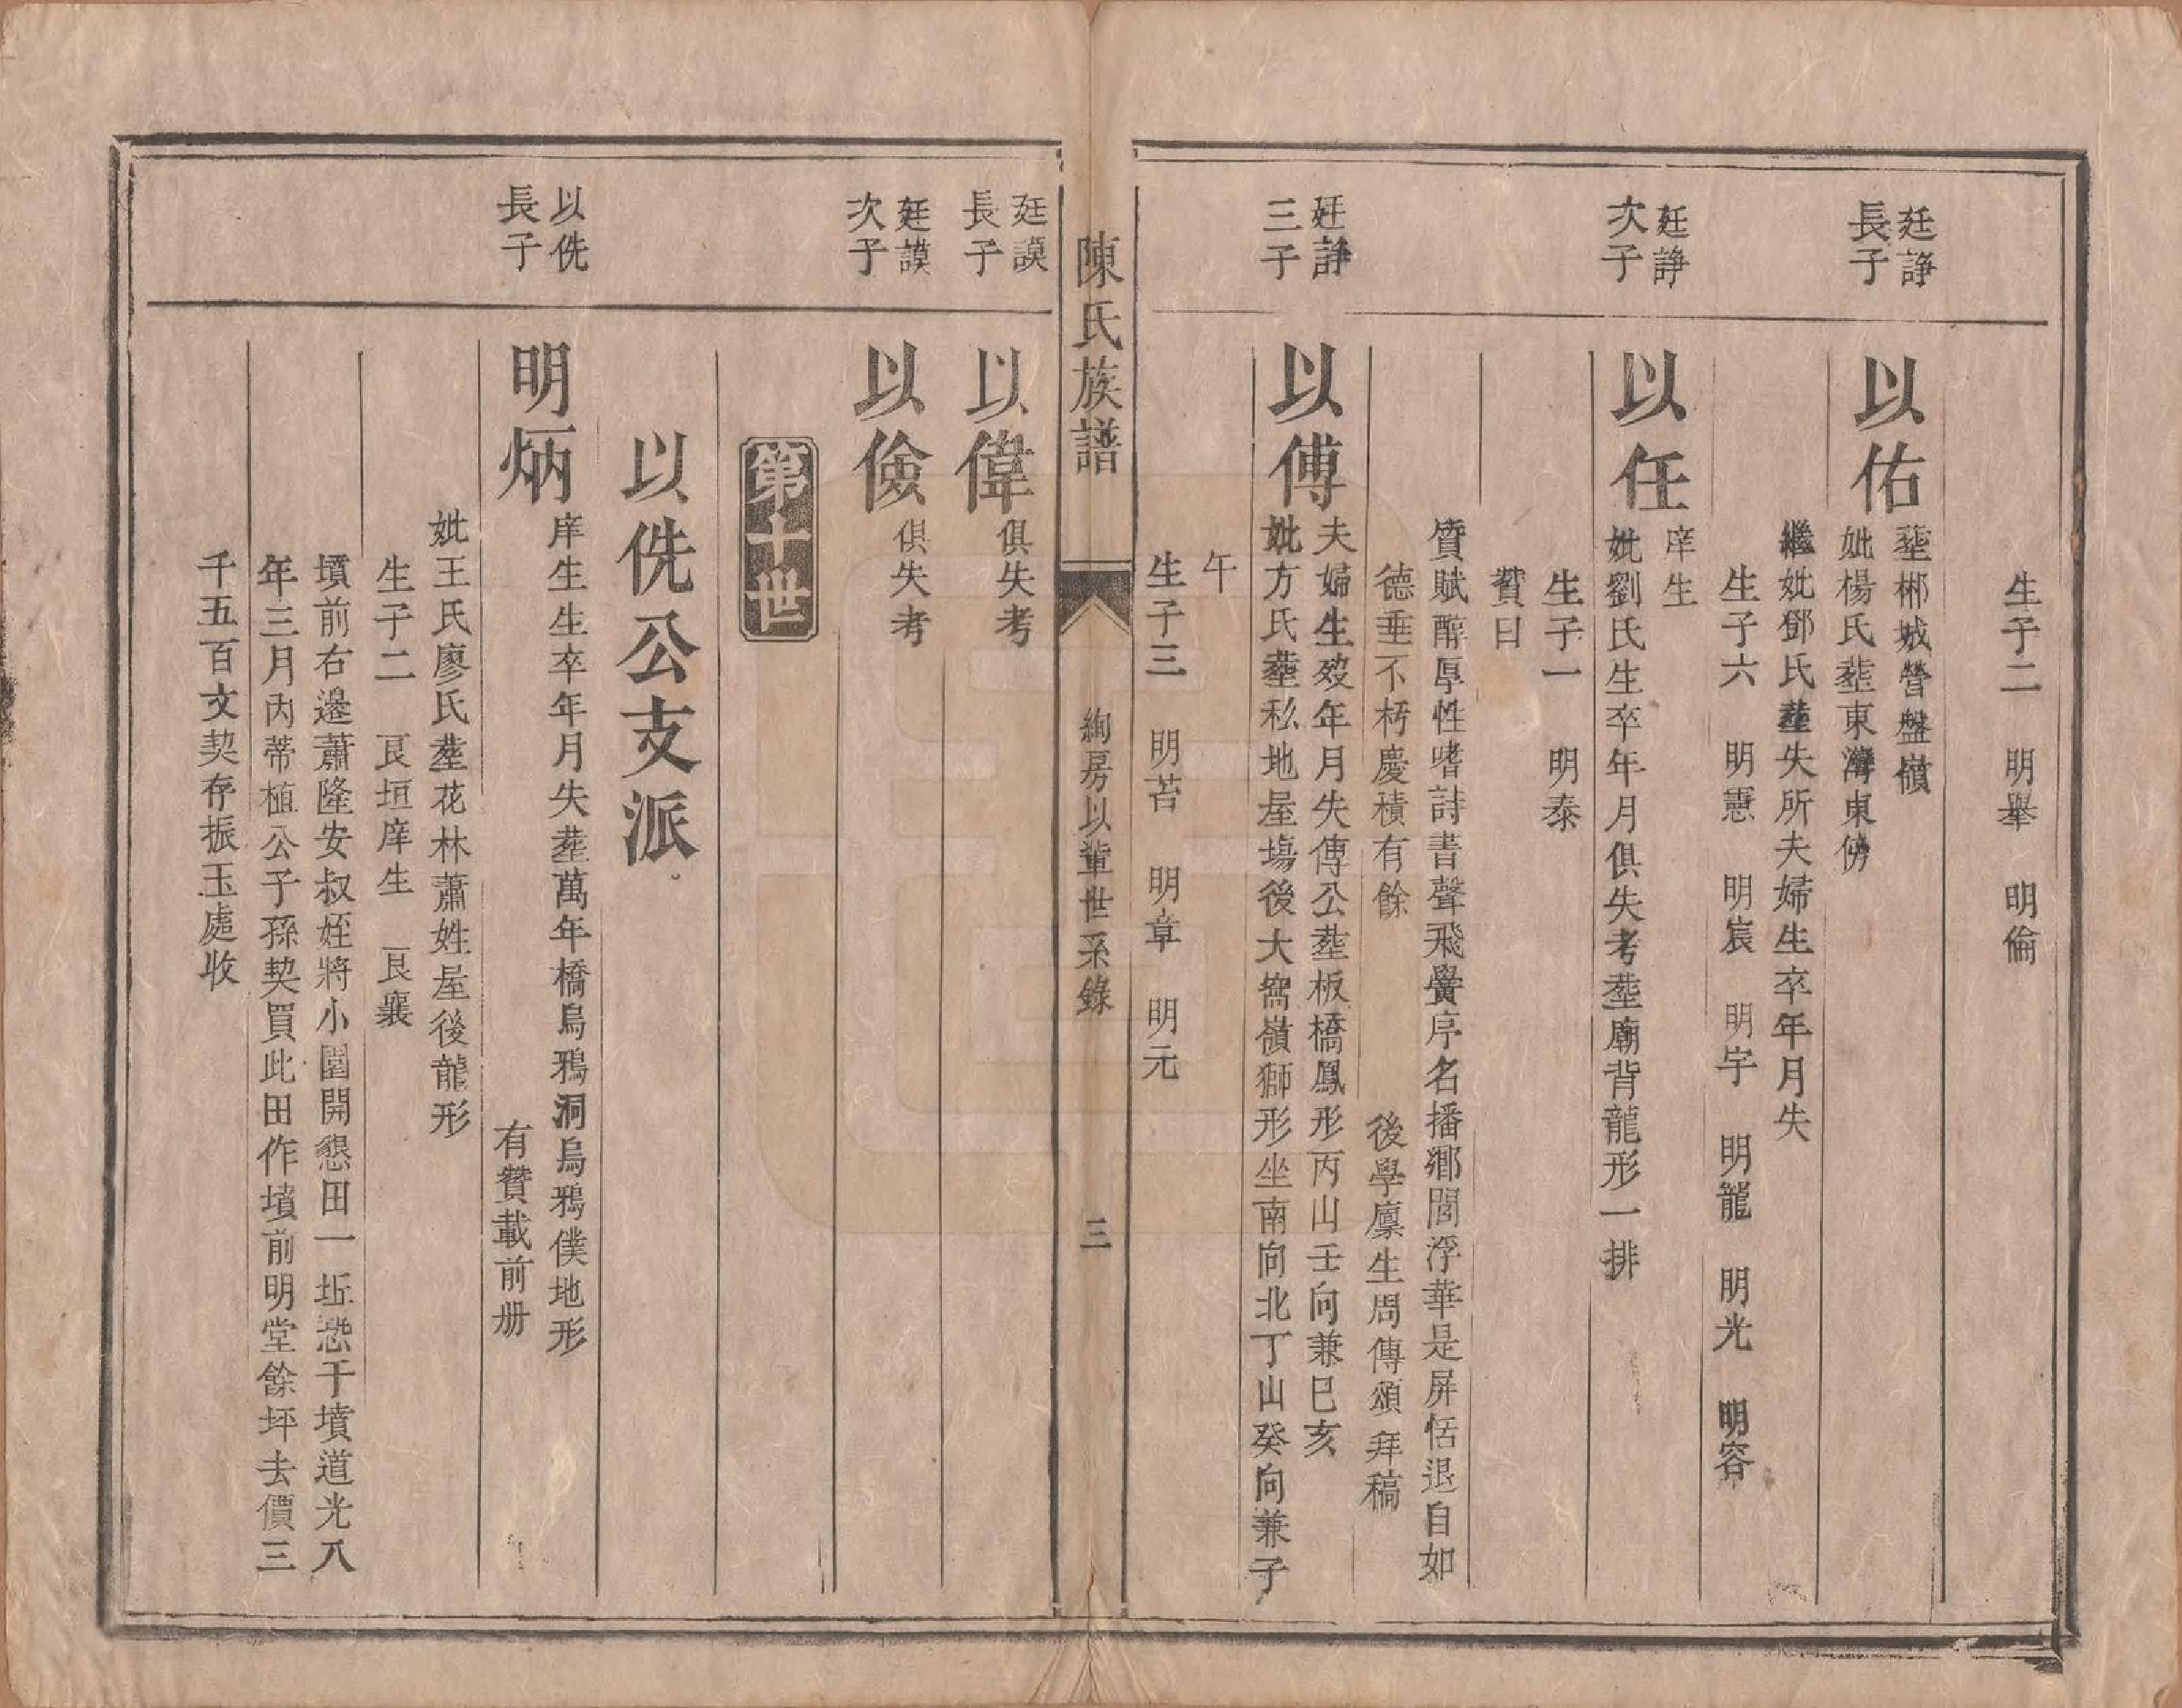 生子二　明舉　明倫
廷諍
長子
以佑
塟郴城營盤嶺
妣楊氏塟東灣東傍
繼妣鄧氏塟失所夫婦生卒年月失
生子六　明憲　明宸　明宇　明龍　明光　明容
廷諍
次子
以任
庠生
妣劉氏生卒年月俱失考塟廟背龍形一排
生子一　明泰
贊曰
質賦醇厚性嗜詩書聲飛黌序名播鄉閭浮華是屏恬退自如
德垂不朽慶積有餘　後學廩生周傳頌拜稿
廷諍
三子
以傅
夫婦生歿年月失傳公塟板橋鳳形丙山壬向兼巳亥
妣方氏塟私地屋塲後大窩嶺獅形坐南向北丁山癸向兼子
午
生子三　明苔　明章　明元
陳氏族譜　絢房以輩世系錄　三
廷謨
長子
以偉
俱失考
廷謨
次子
以儉
俱失考
第十世
以侁公支派
以侁
長子
明炳
庠生生卒年月失塟萬年橋烏鴉洞烏鴉僕地形
有贊載前册
妣王氏廖氏塟花林蕭姓屋後龍形
生子二　艮垣庠生　艮襄
墳前右邊蕭隆安叔姪將小園開懇田一坵恐于墳道光八
年三月內蒂植公子孫契買此田作墳前明堂餘坪去價三
千五百文契存振玉處收